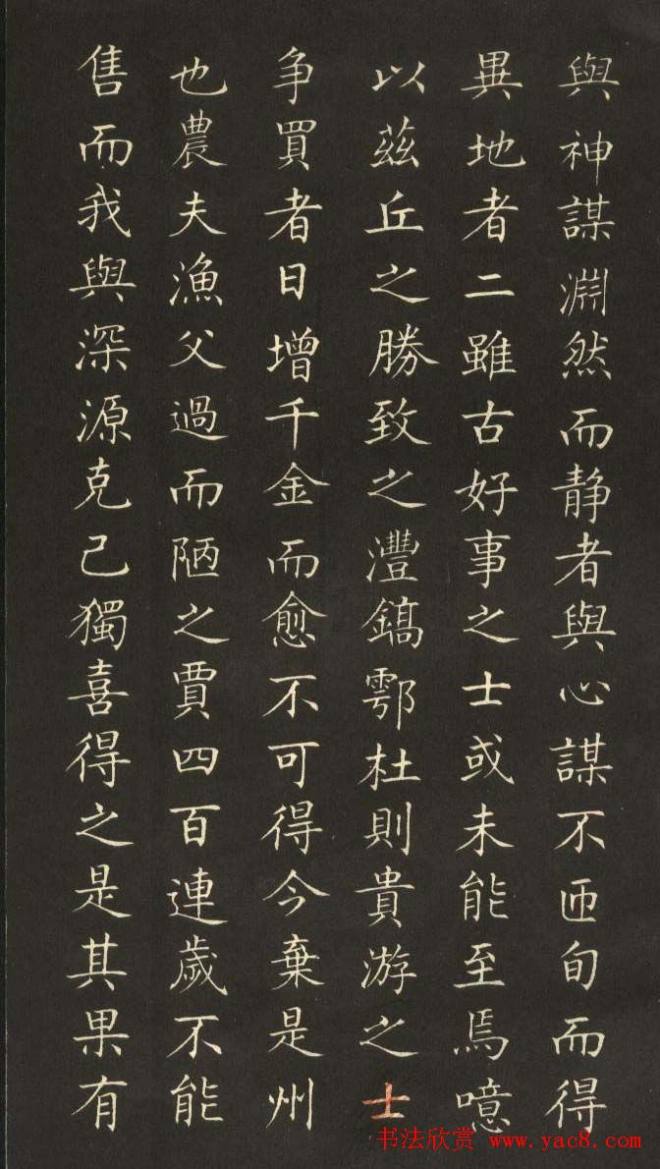 與神謀淵然而静者與心謀不匝旬而得
異地者二雖古好事之士或未能至焉噫
以茲丘之勝致之灃鎬鄠杜則貴游之士
争買者日增千金而愈不可得今棄是州
也農夫漁父過而陋之賈四百連歲不能
售而我與深源克己獨喜得之是其果有
书法欣赏 www.yac8.com